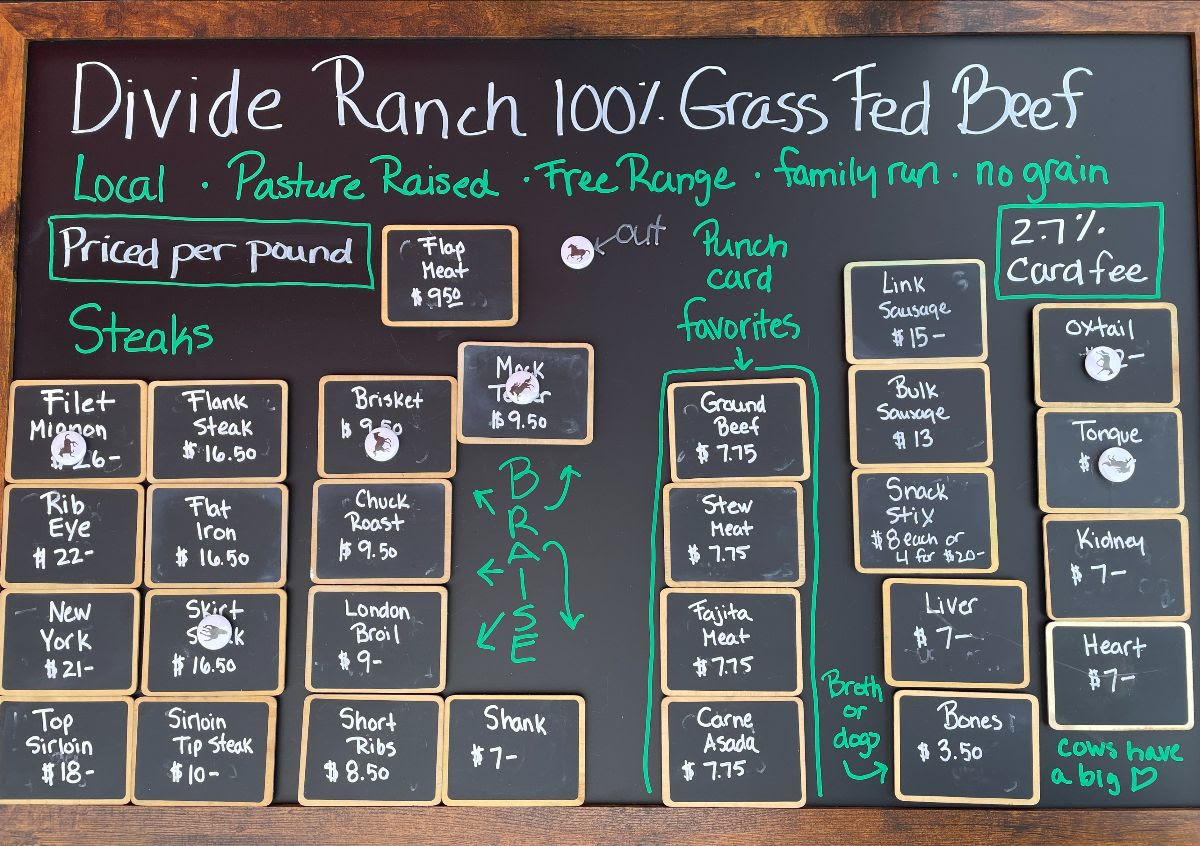 Divide Ranch 100% Grass Fed Beef
Local · Pasture Raised · Free Range · family run · no grain
Priced per pound
Flap
Meat
$ 9.50
out
Punch
card
favorites
2.7%
Card fee
Steaks
Filet
Mignon
26-
Flank
Steak
$ 16.50
Rib
Eye
$ 22-
Flat
Iron
$ 16.50
New
York
$21-
Skirt
$ 16.50
Top
Sirloin
$18-
Sirloin
Tip Steak
$10-
Brisket
$ 9.50
Mock
$9.50
Chuck
Roast
$9.50
London
Broil
$ 9-
Short
Ribs
$ 8.50
Shank
$ 7-
BRAISE
Ground
Beef
$ 7.75
Stew
Meat
$ 7.75
Fajita
Meat
$7.75
Carne
Asada
$ 7.75
Link
Sausage
$ 15-
Bulk
Sausage
$ 13
Snack
Stix
$8 each or
4 for $20-
Liver
$ 7-
Broth
or
dogs
Bones
$ 3.50
Oxtail
Tongue
$
Kidney
$ 7-
Heart
$7-
cows have
a big ♡